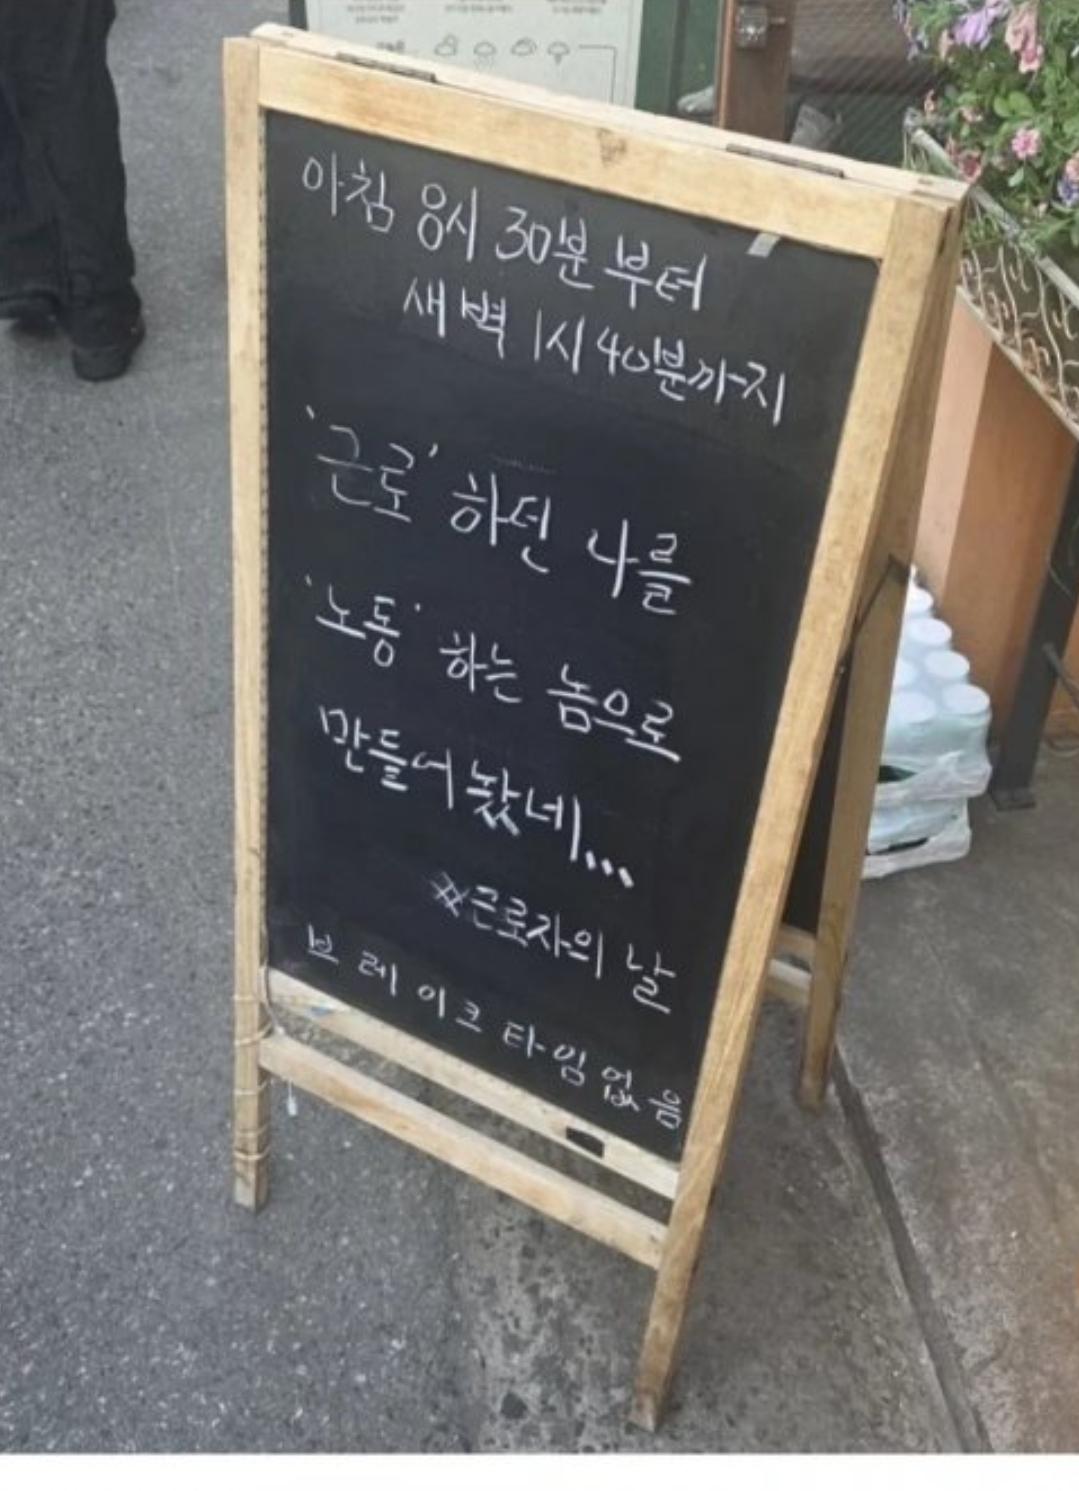 아침 8시 30분 부터
새벽 1시 40분까지
'근로' 하던 나를
'노동' 하는 놈으로
만들어 놨네...
※근로자의 날
브레이크 타임 없음